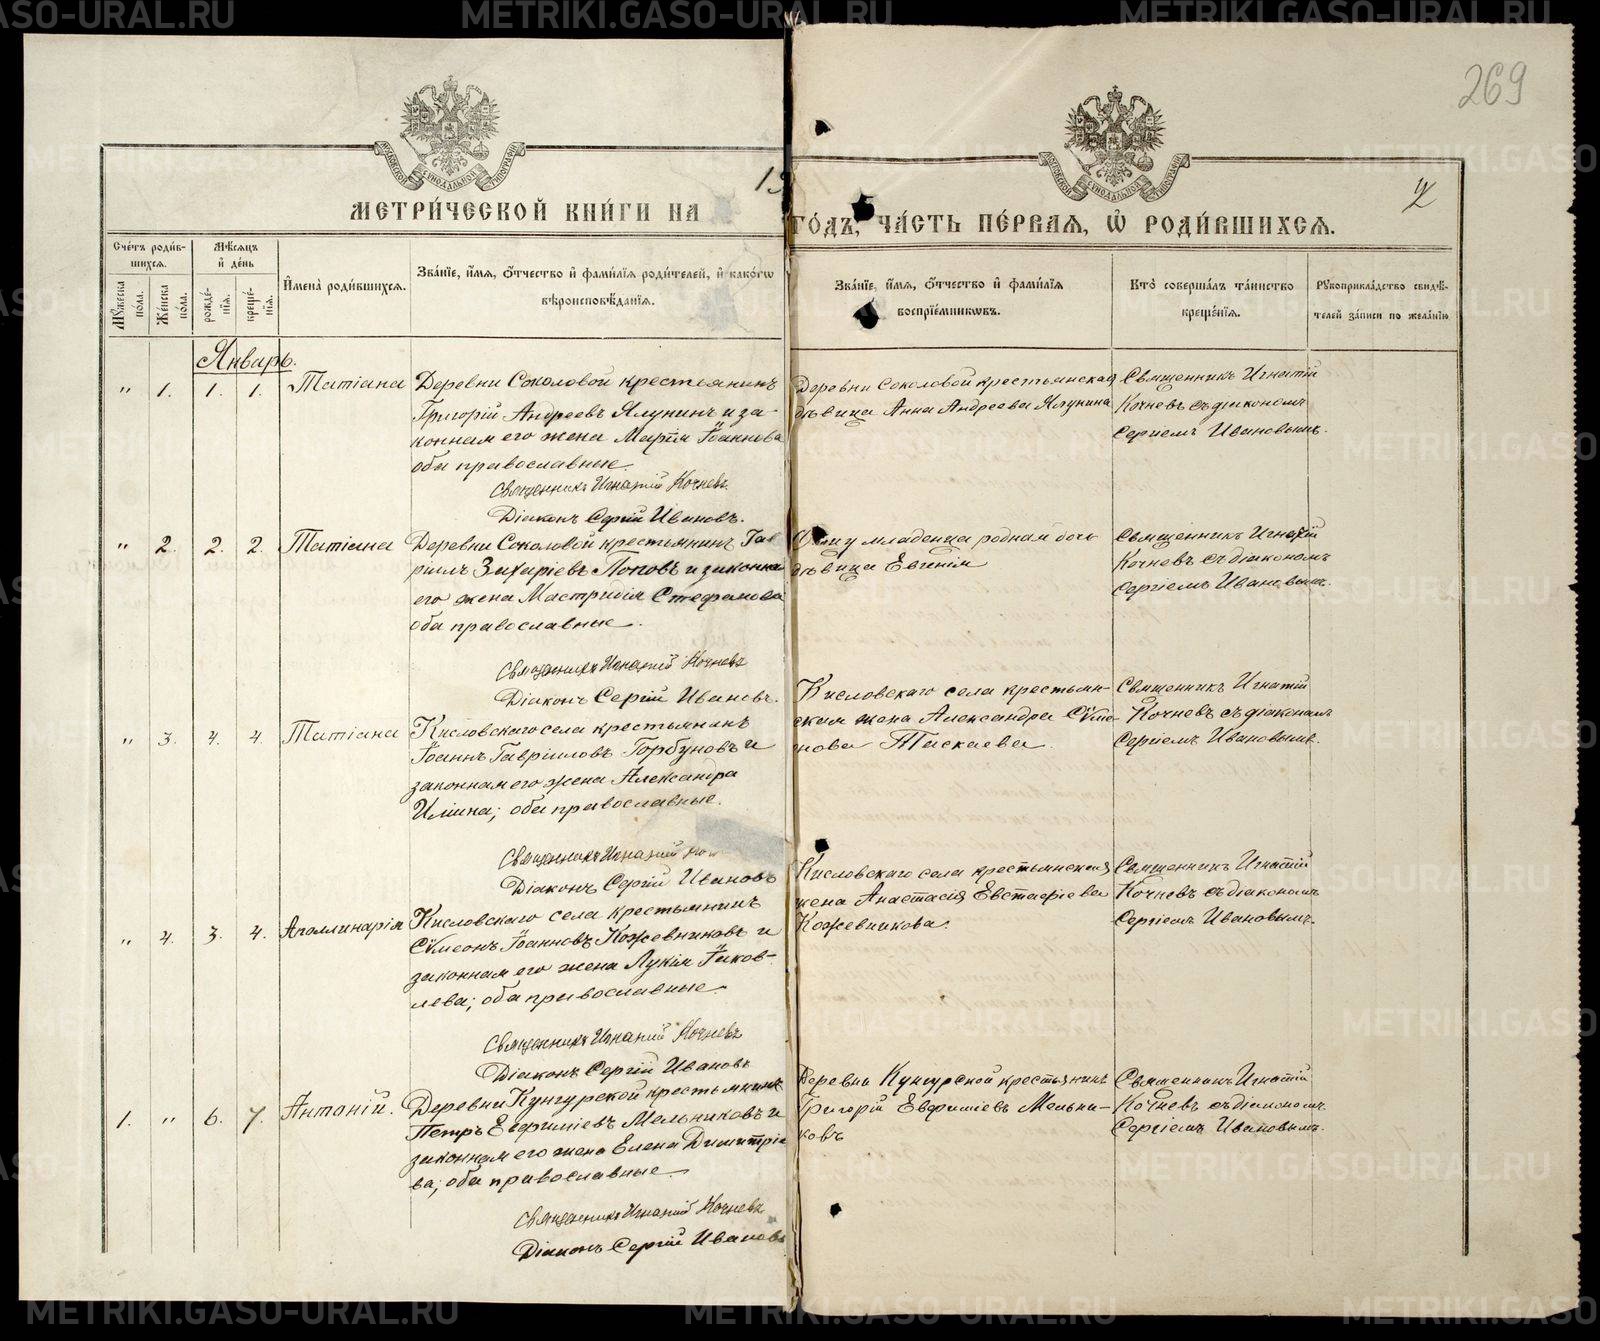 269
МОСКОВСКОЙ СѴНОДАЛЬНОЙ ТИПОГРАФІИ
МОСКОВСКОЙ СѴНОДАЛЬНОЙ ТИПОГРАФІИ
МЕТРИ́ЧЕСКОЙ КНИ́ГИ НА 19
ГО́ДЪ, ЧА́СТЬ ПЕ́РВАЯ, Ѡ РОДИ́ВШИХСЯ.
Сче́тъ роди́в-
шихся.
Мѣ́сяцъ
и де́нь
Мꙋ́жеска по́ла.
Же́нска по́ла.
рожде́-нїя.
креще́-нїя.
Имена̀ роди́вшихся.
Зва́нїе, и́мя, ѻ́тчество и фами́лїя роди́телей, и како́гѡ
вѣроисповѣ́данїя.
Зва́нїе, и́мя, ѻ́тчество и фами́лїя
воспрїе́мникѡвъ.
Кто̀ соверша́лъ та́инство
креще́нїя.
Рꙋкоприкла́дство свидѣ́-
телей за́писи по жела́нїю.
Январь.
" 1. 1. 1. Татіана
Деревни Соколовой крестьянинъ
Григорій Андреевъ Ялунинъ и за-
конная его жена Марія Іоаннова
оба православные.
Священникъ Игнатій Кочневъ
Діаконъ Сергій Ивановъ.
Деревни Соколовой крестьянская
дѣвица Анна Андреева Ялунина
Священникъ Игнатій
Кочневъ съ діакономъ
Сергіемъ Ивановымъ.
" 2. 2. 2. Татіана
Деревни Соколовой крестьянинъ Гав
ріилъ Захаріевъ Поповъ и законна
его жена Мастридія Стефанова
оба православные.
Священникъ Игнатій Кочневъ
Діаконъ Сергій Ивановъ.
младенца родная дочь
дѣвица Евгенія
Священникъ Игнатій
Кочневъ съ діакономъ
Сергіемъ Ивановымъ.
" 3. 4. 4. Татіана
Кисловскаго села крестьянинъ
Іоаннъ Гавріиловъ Горбуновъ и
законная его жена Александра
Иліина; оба православные.
Священникъ Игнатій
Діаконъ Сергій Ивановъ
Кисловскаго села крестьян-
ская жена Александра Сѵме-
онова Таскаева.
Священникъ Игнатій
Кочневъ съ діакономъ
Сергіемъ Ивановымъ.
" 4. 3. 4. Аполлинарія
Кисловскаго села крестьянинъ
Сѵмеонъ Іоанновъ Кожевниковъ и
законная его жена Лукія Іаков-
лева; оба православные.
Священникъ Игнатій Кочневъ
Діаконъ Сергій Ивановъ
Кисловскаго села крестьянская
жена Анастасія Евстафіева
Кожевникова.
Священникъ Игнатій
Кочневъ съ діакономъ
Сергіемъ Ивановымъ.
1. " 6. 7. Антоній.
Деревни Кунгурской крестьянинъ
Петръ Евфиміевъ Мельниковъ и
законная его жена Елена Димитріе
ва; оба православные.
Священникъ Игнатій Кочневъ
Діаконъ Сергій Ивановъ
Деревни Кунгурской крестьянинъ
Григорій Евфиміевъ Мельни-
ковъ
Священникъ Игнатій
Кочневъ съ діакономъ
Сергіемъ Ивановымъ.
METRIKI.GASO-URAL.RU